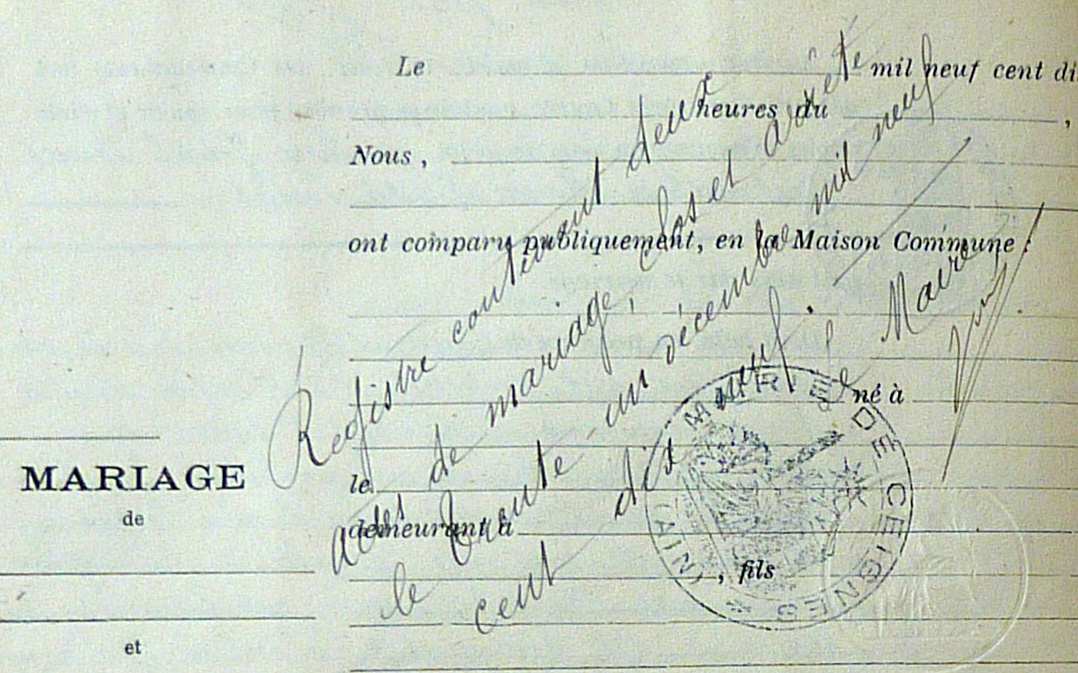 Le mil neuf cent di
heures du ,
Nous,
ont comparu publiquement, en la Maison Commune :
né à
le
demeurant à
, fils
MARIAGE
de
et
Registre contenant deux
actes de mariage, clos et arrêté
le trente un décembre mil neuf
cent dix neuf.
Le Maire,
MAIRIE DE CEIGNES
(AIN)